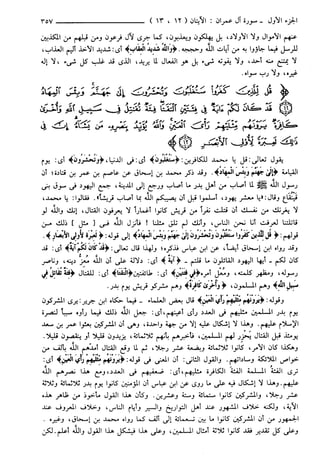 الجزء الأول - سورة آل عمران : الآيتان ( ١٢ ، ١٣ ) ٣٥٧
عنهم الأموال ولا الأولاد، بل يهلكون ويعذبون، كما جرى لآل فرعون ومن قبلهم من المكذبين
للرسل فيما جاؤوا به من آيات الله وحججه. ﴿والله شديد العقاب﴾ أي: شديد الأخذ أليم العذاب،
لا يمتنع منه أحد، ولا يفوته شيء بل هو الفعال لما يريد، الذي قد غلب كل شيء، لا إله
غيره، ولا رب سواه.
قل للذين كفروا ستغلبون وتحشرون إلى جهنم وبئس المهاد
قد كان لكم آية في فئتين التقتا فئة تقاتل في سبيل الله وأخرى
كافرة يرونهم مثليهم رأي العين والله يؤيد بنصره من يشاء إن في
ذلك لعبرة لأولي الأبصار
يقول تعالى: قل يا محمد للكافرين: ﴿ستغلبون﴾ أي: في الدنيا، ﴿وتحشرون﴾ أي: يوم
القيامة ﴿إلى جهنم وبئس المهاد﴾. وقد ذكر محمد بن إسحاق عن عاصم بن عمر بن قتادة؛ أن
رسول الله ﷺ لما أصاب من أهل بدر ما أصاب ورجع إلى المدينة، جمع اليهود في سوق بني
قينقاع وقال: «يا معشر يهود، أسلموا قبل أن يصيبكم الله بما أصاب قريشاً». فقالوا: يا محمد،
لا يغرنك من نفسك أن قتلت نفراً من قريش كانوا أغماراً لا يعرفون القتال، إنك والله لو
قاتلتنا لعرفت أنا نحن الناس، وأنك لم تلق مثلنا! فأنزل الله في [ مثل ] ذلك من
قولهم: ﴿قل للذين كفروا ستغلبون وتحشرون إلى جهنم وبئس المهاد﴾ إلى قوله: ﴿لعبرة لأولي الأبصار﴾.
وقد رواه ابن إسحاق أيضاً، عن ابن عباس فذكره؛ ولهذا قال تعالى: ﴿قد كان لكم آية﴾ أي: قد
كان لكم - أيها اليهود القائلون ما قلتم - ﴿آية﴾ أي: دلالة على أن الله معز دينه، وناصر
رسوله، ومظهر كلمته، ومعل أمره ﴿في فئتين﴾ أي: طائفتين ﴿التقتا﴾ أي: للقتال ﴿فئة تقاتل في
سبيل الله﴾ وهم المسلمون، ﴿وأخرى كافرة﴾ وهم مشركو قريش يوم بدر.
وقوله: ﴿يرونهم مثليهم رأي العين﴾ - قال بعض العلماء - فيما حكاه ابن جرير: يرى المشركون
يوم بدر المسلمين مثليهم في العدد رأي أعينهم، أي: جعل الله ذلك فيما رأوه سبباً لنصرة
الإسلام عليهم. وهذا لا إشكال عليه إلا من جهة واحدة، وهي أن المشركين بعثوا عمر بن سعد
يومئذ قبل القتال يحزر لهم المسلمين، فأخبرهم بأنهم ثلاثمائة، يزيدون قليلا أو ينقصون قليلا.
وهكذا كان الأمر، كانوا ثلاثمائة وبضعة عشر رجلا، ثم لما وقع القتال أمدهم الله بألف من
خواص الملائكة وساداتهم. والقول الثاني: أن المعنى في قوله: ﴿يرونهم مثليهم رأي العين﴾ أي:
ترى الفئة المسلمة الفئة الكافرة مثليهم، أي: ضعفيهم في العدد، ومع هذا نصرهم الله
عليهم. وهذا لا إشكال فيه على ما روى عن ابن عباس أن المؤمنين كانوا يوم بدر ثلاثمائة وثلاثة
عشر رجلا، والمشركين كانوا ستمائة وستة وعشرين. وكأن هذا القول مأخوذ من ظاهر هذه
الآية، ولكنه خلاف المشهور عند أهل التواريخ والسير وأيام الناس، وخلاف المعروف عند
الجمهور من أن المشركين كانوا ما بين تسعمائة إلى ألف كما رواه محمد بن إسحاق، وغيره .
وعلى كل تقدير فقد كانوا ثلاثة أمثال المسلمين، وعلى هذا فيشكل هذا القول والله أعلم. لكن